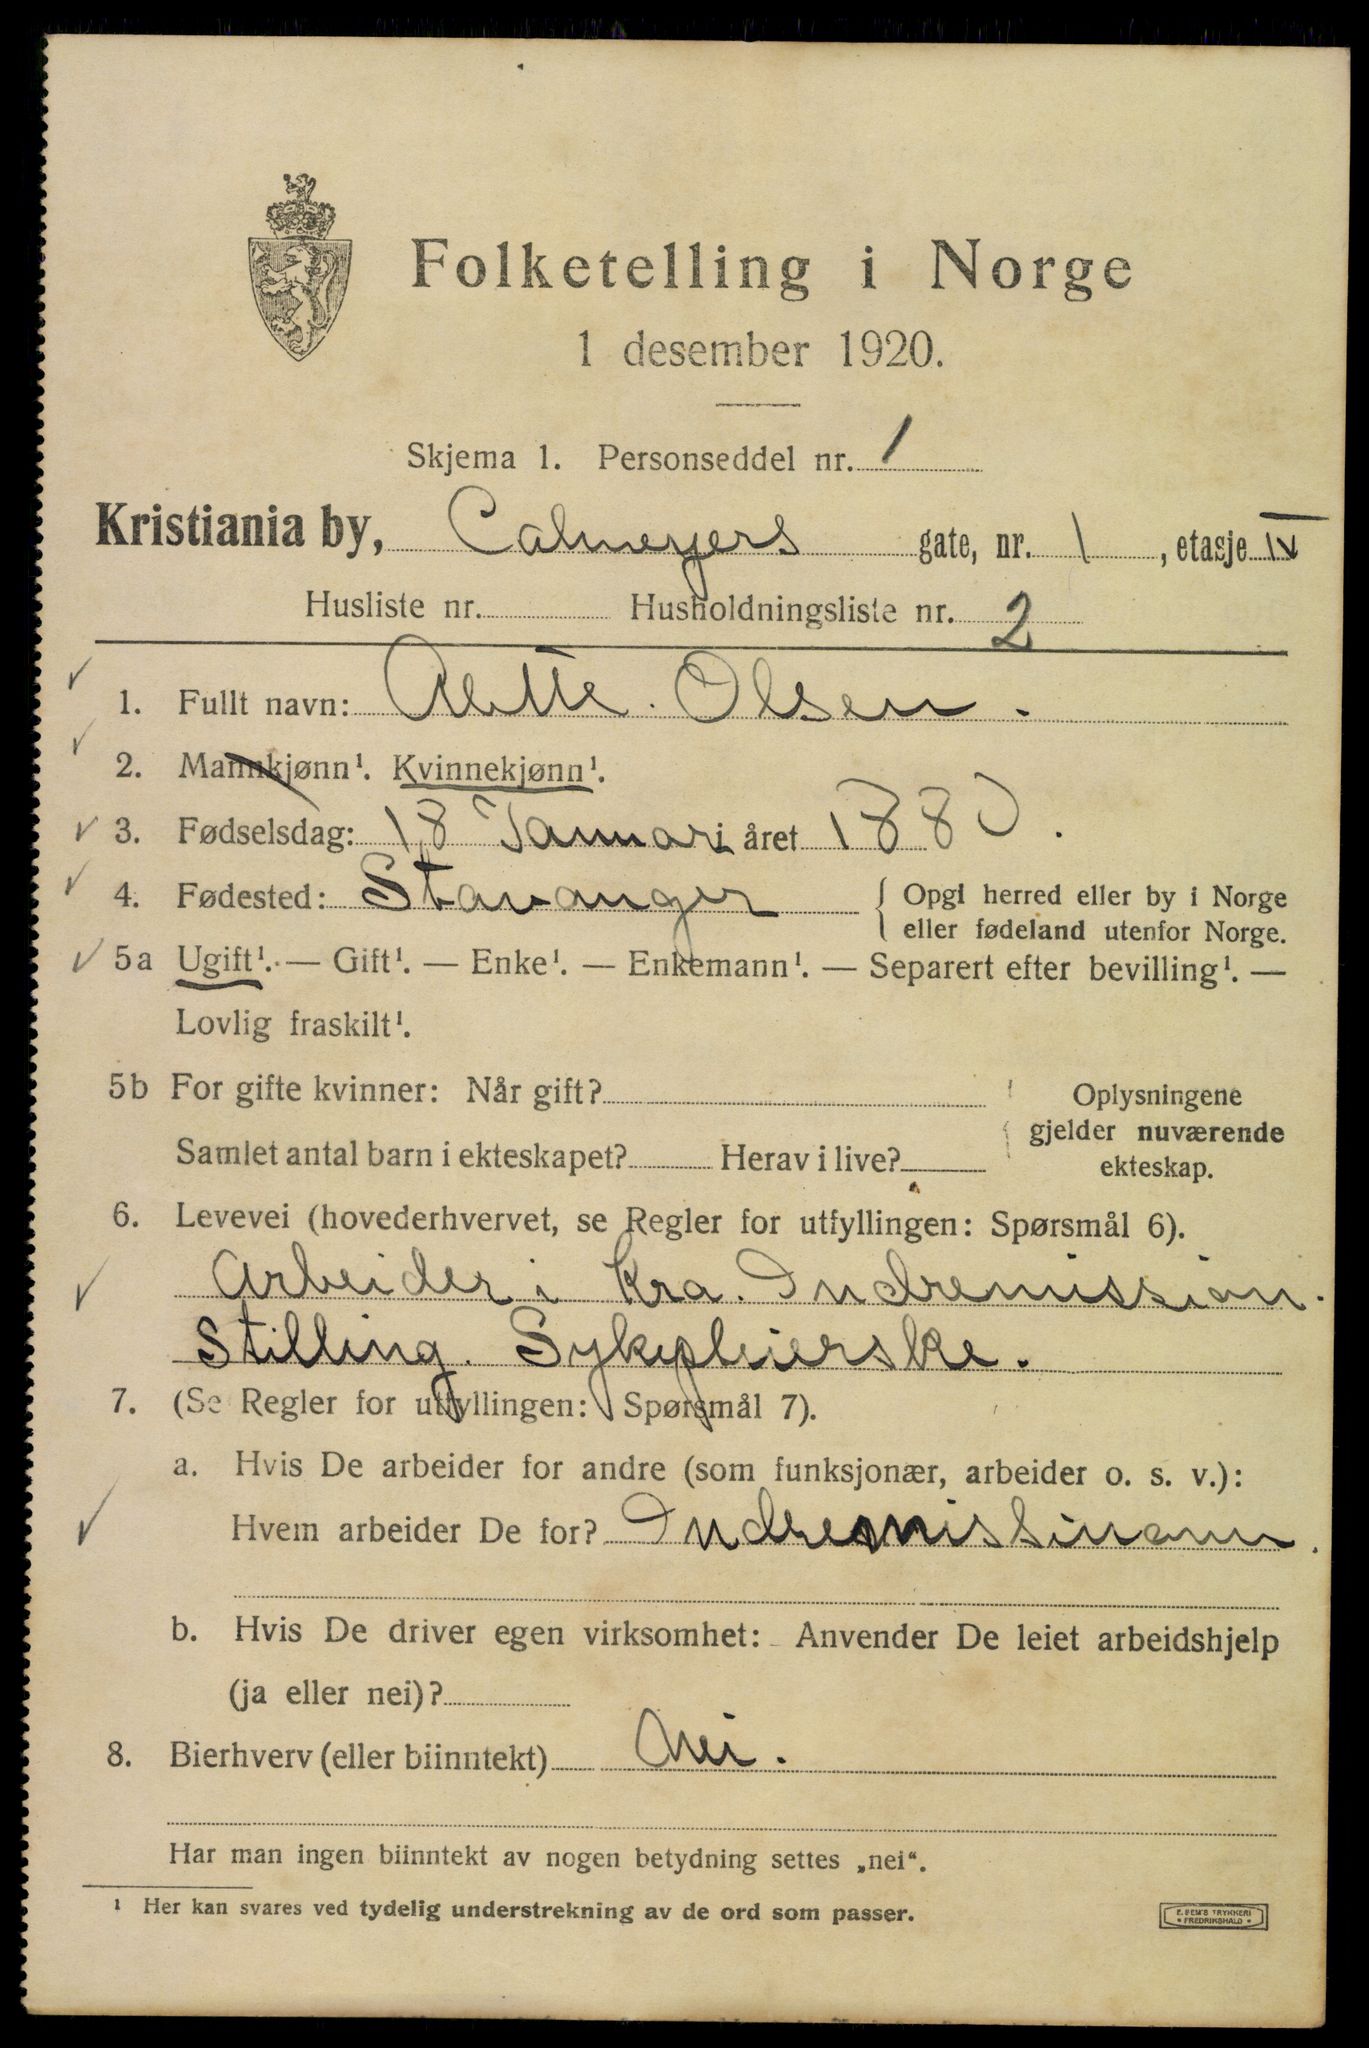 Folketelling i Norge
1 desember 1920.
Skjema 1. Personseddel nr. 1
Kristiania by, Calmeyers gate, nr. 1, etasje IV
Husliste nr. Husholdningsliste nr. 2
1. Fullt navn: Alette Olsen.
2. Mannkjønn¹. Kvinnekjønn¹.
3. Fødselsdag: 18 Januar i året 1880.
4. Fødested: Stavanger { Opgi herred eller by i Norge
eller fødeland utenfor Norge.
5a Ugift¹. — Gift¹. — Enke¹. — Enkemann¹. — Separert efter bevilling¹. —
Lovlig fraskilt¹.
5b For gifte kvinner: Når gift?
Samlet antal barn i ekteskapet? Herav i live?
Oplysningene
gjelder nuværende
ekteskap.
6. Levevei (hovederhvervet, se Regler for utfyllingen: Spørsmål 6).
Arbeider i Kra. Indremission.
Stilling. Sykepleierske.
7. (Se Regler for utfyllingen: Spørsmål 7).
a. Hvis De arbeider for andre (som funksjonær, arbeider o. s. v.):
Hvem arbeider De for?
b. Hvis De driver egen virksomhet: Anvender De leiet arbeidshjelp
(ja eller nei)?
8. Bierhverv (eller biinntekt) Nei.
Har man ingen biinntekt av nogen betydning settes „nei“.
¹ Her kan svares ved tydelig understrekning av de ord som passer.
E. SEM'S TRYKKERI
FREDRIKSHALD